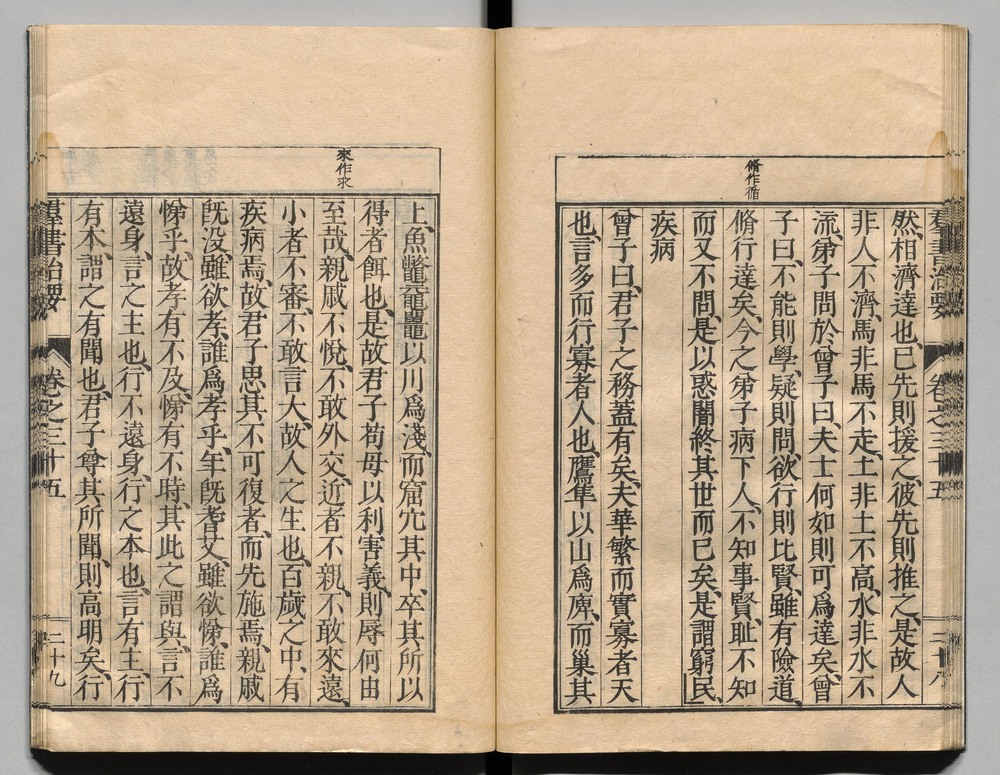 脩作循
然、相濟達也、已先則援之、彼先則推之、是故人
非人不濟、馬非馬不走、土非土不高、水非水不
流、弟子問於曾子曰、夫士何如則可爲達矣、曾
子曰、不能則學、疑則問、欲行則比賢、雖有險道、
脩行達矣、今之弟子病下人、不知事賢、耻不知
而又不問、是以惑闇終其世而已矣、是謂窮民、
疾病
曾子曰、君子之務蓋有矣、夫華繁而實寡者天
也、言多而行寡者人也、鷹隼以山爲庳、而巢其
羣書治要
卷之三十五
二十八
來作求
上、魚鼈黿鼉以川爲淺、而窟穴其中、卒其所以
得者餌也、是故君子苟毋以利害義、則辱何由
至哉、親戚不悅、不敢外交、近者不親、不敢來遠、
小者不審、不敢言大、故人之生也、百歲之中、有
疾病焉、故君子思其不可復者、而先施焉、親戚
旣没、雖欲孝、誰爲孝乎、年旣耆艾、雖欲悌、誰爲
悌乎、故孝有不及、悌有不時、其此之謂與、言不
遠身、言之主也、行不遠身、行之本也、言有主、行
有本、謂之有聞也、君子尊其所聞、則高明矣、行
羣書治要
卷之三十五
二十九